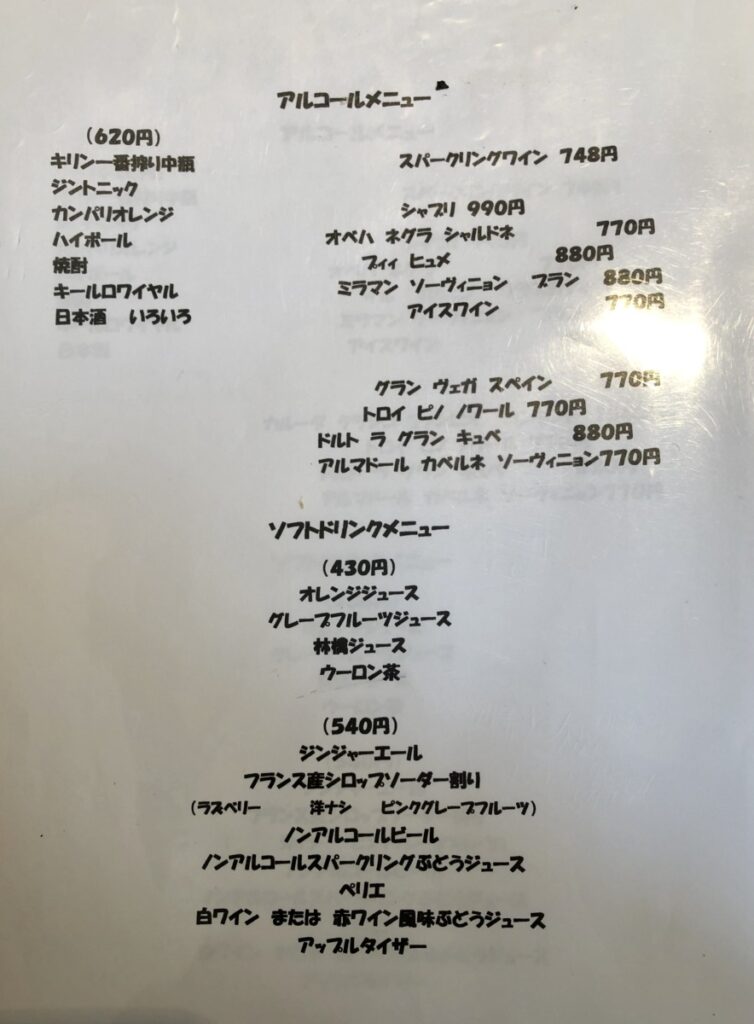 アルコールメニュー
（620円）
キリン一番搾り中瓶
ジントニック
カンパリオレンジ
ハイボール
焼酎
キールロワイヤル
日本酒　いろいろ
スパークリングワイン 748円
シャブリ 990円
オベハ ネグラ シャルドネ 770円
プィィ ヒュメ 880円
ミラマン ソーヴィニョン ブラン 880円
アイスワイン 770円
グラン ヴェガ スペイン 770円
トロイ ピノ ノワール 770円
ドルト ラ グラン キュベ 880円
アルマドール カベルネ ソーヴィニョン770円
ソフトドリンクメニュー
（430円）
オレンジジュース
グレープフルーツジュース
林檎ジュース
ウーロン茶
（540円）
ジンジャーエール
フランス産シロップソーダー割り
（ラズベリー　洋ナシ　ピンクグレープフルーツ）
ノンアルコールビール
ノンアルコールスパークリングぶどうジュース
ペリエ
白ワイン または 赤ワイン風味ぶどうジュース
アップルタイザー